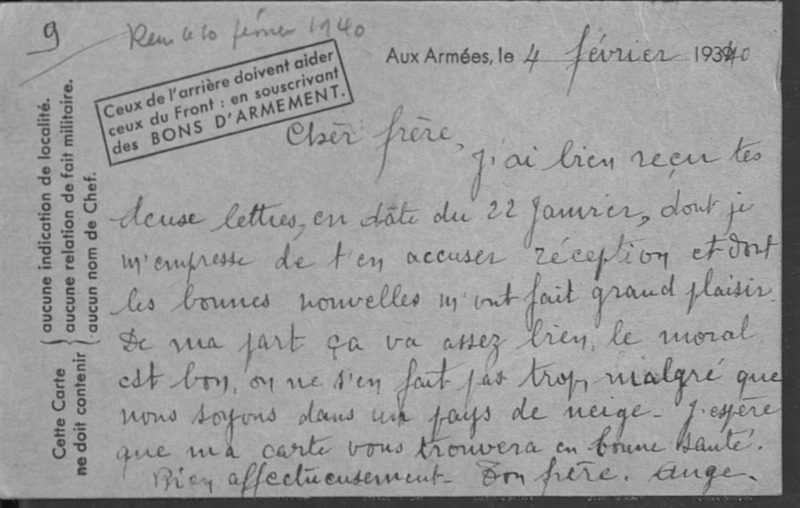 9
Reçu le 10 février 1940
Aux Armées, le 4 février 193940
Ceux de l'arrière doivent aider
ceux du Front : en souscrivant
des BONS D'ARMEMENT.
Cette Carte
ne doit contenir
aucune indication de localité.
aucune relation de fait militaire.
aucun nom de Chef.
Cher frère,
J'ai bien reçu tes
deuse lettres, en dâte du 22 Janvier, dont je
m'empresse de t'en accuser réception et dont
les bonnes nouvelles m'ont fait grand plaisir.
De ma part ça va assez bien, le moral
est bon, on ne s'en fait pas trop, malgré que
nous soyons dans un pays de neige - J'espère
que ma carte vous trouvera en bonne santé.
Bien affectueusement - Ton frère. Ange.